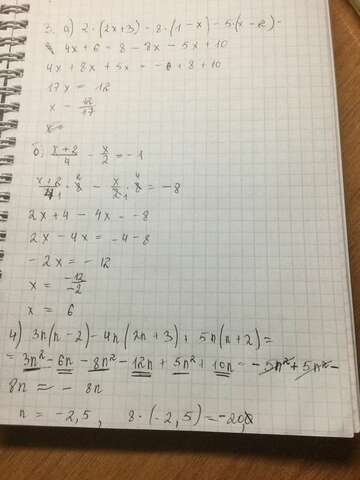 3. а) 2·(2x+3) = 8·(1-x) - 5·(x-2) -
4x + 6 = 8 - 8x - 5x + 10
4x + 8x + 5x = -6 + 8 + 10
17x = 12
x = 12/17
б) x+2/4 - x/2 = -1
x+2/4 · 8 - x/2 · 8 = -8
2x + 4 - 4x = -8
2x - 4x = -4 - 8
-2x = -12
x = -12/-2
x = 6
4) 3n(n-2) - 4n(2n+3) + 5n(n+2) =
= 3n² - 6n - 8n² - 12n + 5n² + 10n = -5n² + 5n² -
8n = - 8n
n = -2,5, 8·(-2,5) = -20